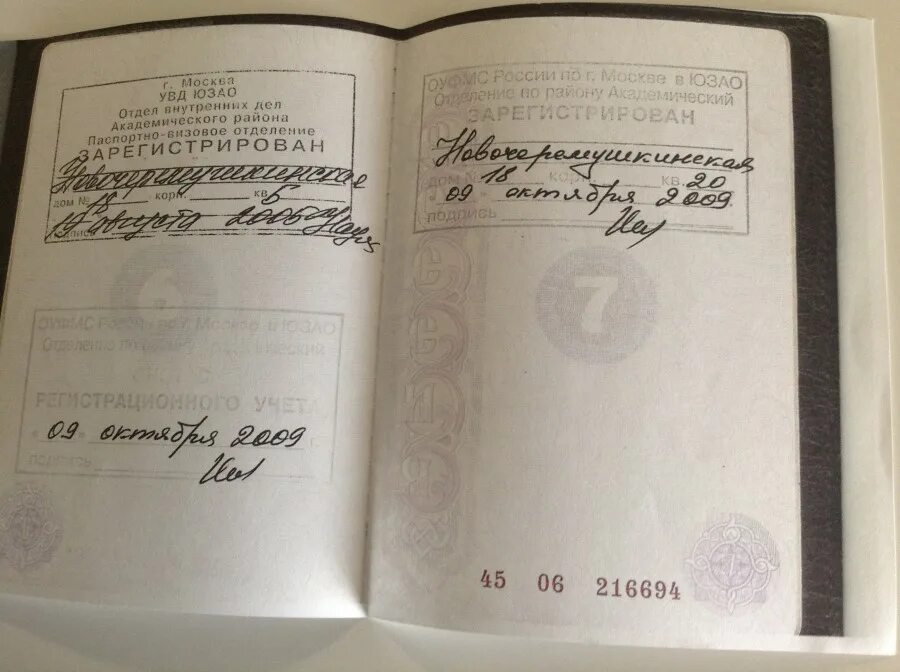 г. Москва
УВД ЮЗАО
Отдел внутренних дел
Академического района
Паспортно-визовое отделение
ЗАРЕГИСТРИРОВАН
Новочеремушкинская
дом № корп. кв. 5
19 августа 2006
6
ОУФМС России по г. Москве в ЮЗАО
Отделение по району Академический
СНЯТ С
РЕГИСТРАЦИОННОГО УЧЕТА
"09" октября 2009 г.
подпись
ОУФМС России по г. Москве в ЮЗАО
Отделение по району Академический
ЗАРЕГИСТРИРОВАН
Новочеремушкинская
дом 18 корп. кв. 20
"09" октября 2009
подпись
7
45 06 216694